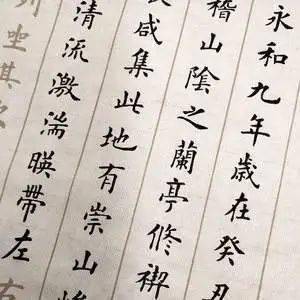 永和九年歲在癸丑
稽山陰之蘭亭修禊
長咸集此地有崇山峻
清流激湍暎帶左右
列坐其次